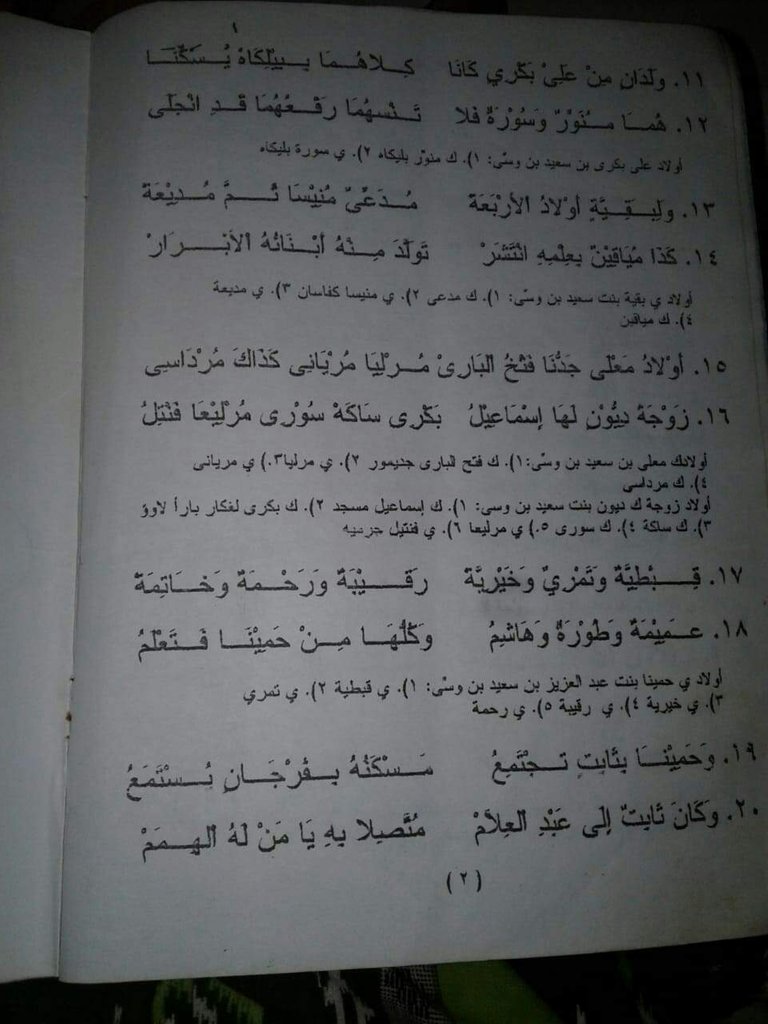 ١
١١. ولَدَانِ مِنْ عَلِىْ بَكْرِي كَانَا كِلاَهُمَا بِبيْلِكَاهْ يُسْكَنَا
١٢. هُمَا مُنَوَّرْ وَسُوْرَةٌ فلا تَنْسهُمَا رَفْعُهُمَا قَدِ انْجَلَى
أولاد على بكرى بن سعيد بن وسى: ١). ك منوّر بليكاه ٢). ي سورة بليكاه
١٣. ولِبَقِيَّةٍ أوْلاَدُ الأرْبَعَة مُدَعِّىْ مُنِيْسَا ثُمَّ مُدِيْعَةْ
١٤. كَذَا مُيَاقِيْنْ بِعِلْمِهِ انْتَشَرْ تَوَلَّدَ مِنْهُ أبْنَائُهُ الأبْرَارْ
أولاد ي بقية بنت سعيد بن وسّى: ١). ك مدعى ٢). ي منيسا كفاسان ٣). ي مديعة
٤). ك مياقين
١٥. أوْلاَدُ مَعْلَى جَدُّنَا فَتْحُ الْبَارِىْ مُرلِيَا مُرْيَانِى كَذَاكَ مُرْدَاسِى
١٦. زَوْجَةُ دِيُوْنِ لَهَا إسْمَاعِيْلُ بَكْرِى سَاكَهْ سُوْرِى مُرْلِيْعَا فَنْتِلُ
أولادك معلى بن سعيد بن وسّى: ١). ك فتح البارى جديمور ٢). ي مرليا ٣.) ي مريانى
٤). ك مرداسى
أولاد زوجة ك ديون بنت سعيد بن وسى: ١). ك إسماعيل مسجد ٢). ك بكرى لفكار بارأ لاوو
٣). ك ساكة ٤). ك سورى ٥.) ي مرليعا ٦). ي فنتيل
١٧. قِبْطِيَّةٌ وَتَمْرِيْ وَخَيْرِيَّةْ رَقِيْبَةٌ وَرَحْمَةٌ وَخَاتِمَةْ
١٨. عَمِيْمَةٌ وَطُوْرَةٌ وَهَاشِمُ وَكُلُّهَا مِنْ حَمِيْنَا فَتَعْلَمُ
أولاد ي حمينا بنت عبد العزيز بن سعيد بن وسّى: ١). ي قبطية ٢). ي تمري
٣). ي خيرية ٤). ي رقيبة ٥). ي رحمة
١٩. وَحَمِيْنَا بِثَابِتٍ تَجْتَمِعُ مَسْكَنُهُ بِفُرْجَانِ يُسْتَمَعُ
٢٠. وَكَانَ ثَابِتٌ إلَى عَبْدِ الْعِلاَمْ مُتَّصِلا بِهِ يَا مَنْ لَهُ الْهِمَمْ
(٢)